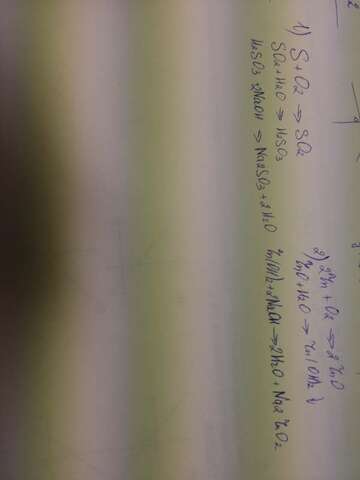 1) S + O2 → SO2
SO2 + H2O → H2SO3
H2SO3 + 2NaOH → Na2SO3 + 2H2O
2) 2Zn + O2 → 2ZnO
ZnO + H2O → Zn(OH)2 ↓
Zn(OH)2 + 2NaOH → 2H2O + Na2ZnO2